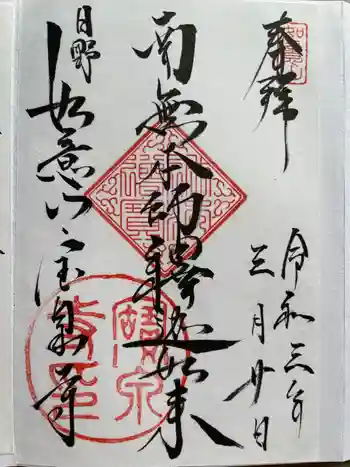 奉拝
令和三年
三月廿日
南無本師釋迦如来
日野
如意山宝泉寺